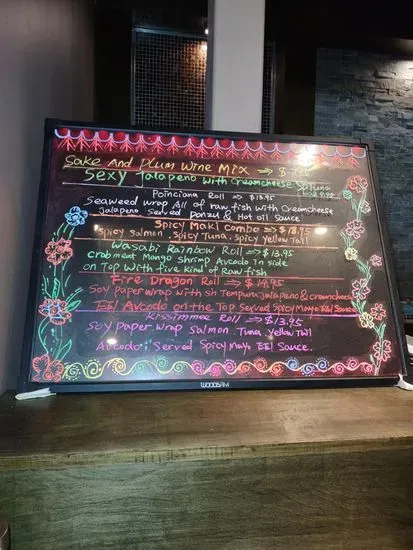 Sake And Plum Wine Mix → $7.95
Sexy Jalapeno with Creamcheese SpTuna
Poinciana Roll → $13.95
Seaweed wrap All of raw fish with Creamcheese
Jalapeno Served Ponzu & Hot oil Sauce
Spicy Maki Combo → $18.95
Spicy salmon. Spicy Tuna. Spicy yellow Tail
Wasabi Rainbow Roll → $13.95
crabmeat Mongo shrimp Avcodo In side
on Top with five kind of Raw fish
Fire Dragon Roll → $14.95
Soy Paper wrap with sh Tempura Jalapeno & creamcheese
Eel Avcodo on the Top Served Spicy Mayo Eel Sauce
Kissimmee Roll → $13.95
Soy Paper wrap Salmon Tuna Yellow Tail
Avcodo. Served Spicy Mayo Eel Sauce.
WOODSAM